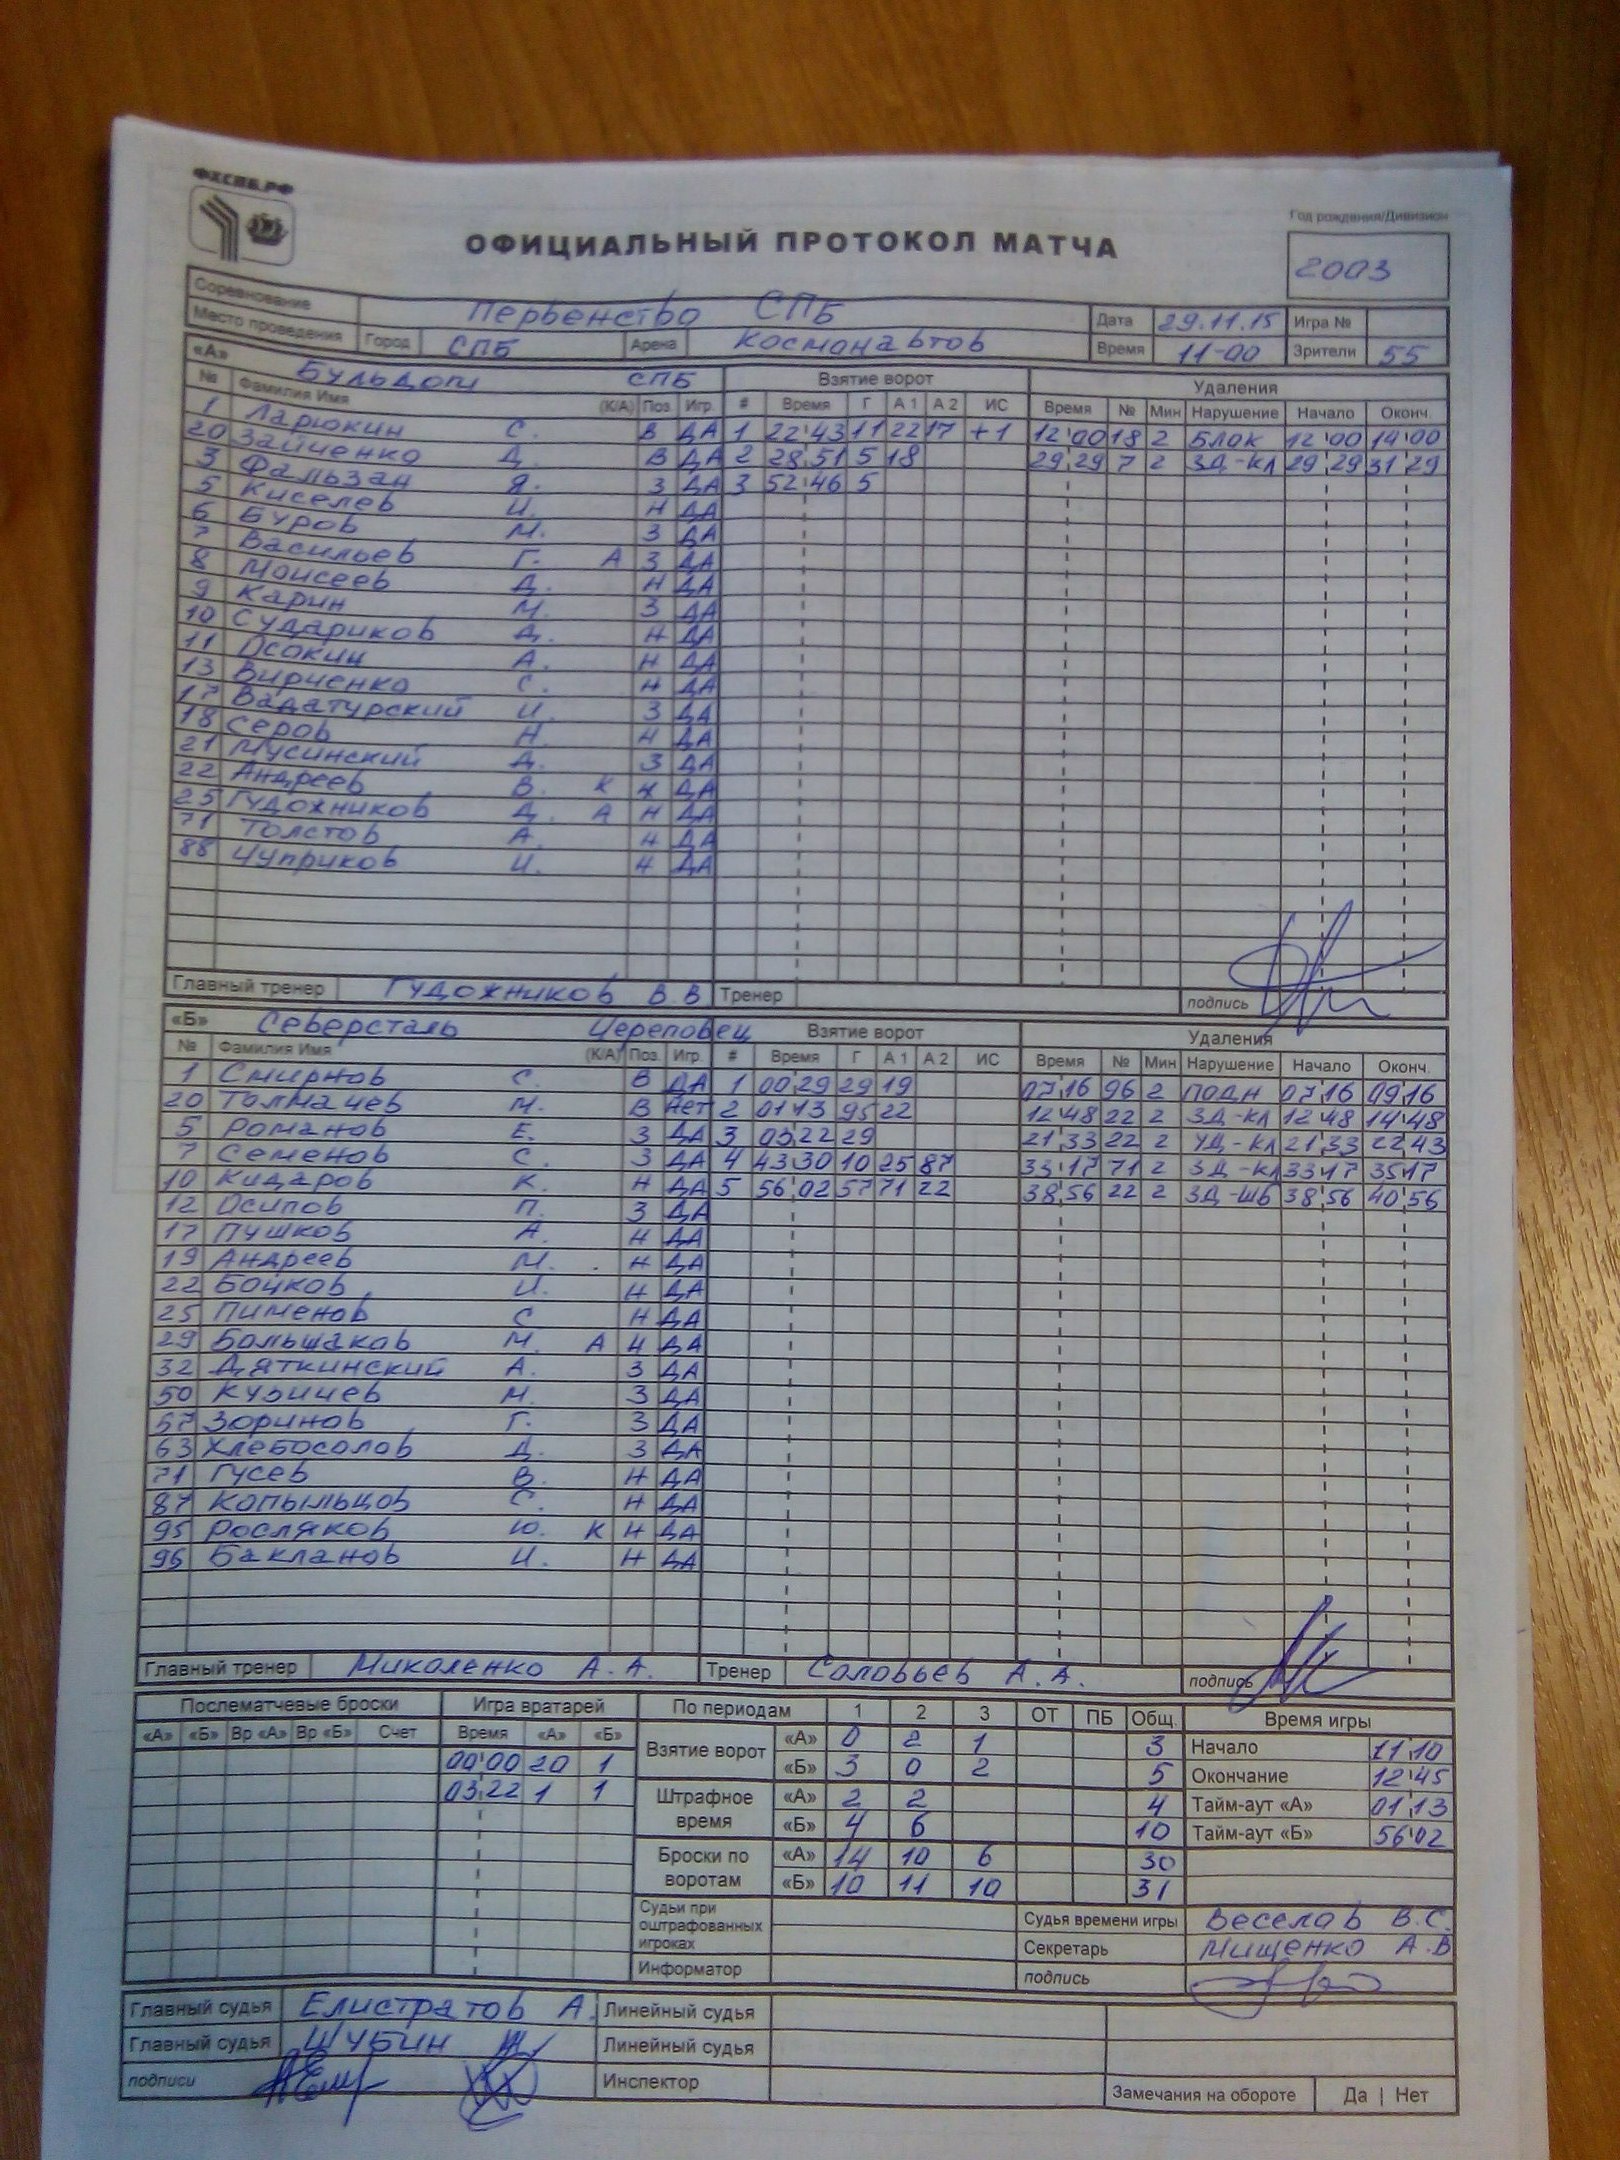 ФХСПБ.РФ
ОФИЦИАЛЬНЫЙ ПРОТОКОЛ МАТЧА
Год рождения/Дивизион
2003
Соревнование Первенство СПБ Дата 29.11.15 Игра №
Место проведения Город СПБ Арена Космонавтов Время 11-00 Зрители 55
«А» Бульдоги СПБ Взятие ворот Удаления
№ Фамилия Имя (К/А) Поз. Игр. # Время Г А 1 А 2 ИС Время № Мин Нарушение Начало Оконч.
1 Ларюкин С. В ДА 1 22 43 11 22 17 +1 12 00 18 2 БЛОК 12 00 14 00
20 Зайченко Д. В ДА 2 28 51 5 18 29 29 7 2 ЗД-КЛ 29 29 31 29
3 Фальзан Я. З ДА 3 52 46 5
5 Киселев И. Н ДА
6 Буров М. З ДА
7 Васильев Г. А З ДА
8 Моисеев Д. Н ДА
9 Карин М. З ДА
10 Судариков Д. Н ДА
11 Осокин А. Н ДА
13 Вирченко С. Н ДА
17 Вадатурский И. З ДА
18 Серов Н. Н ДА
21 Мусинский Д. З ДА
22 Андреев В. К Н ДА
25 Гудожников Д. А Н ДА
71 Толстов А. Н ДА
88 Чуприков И. Н ДА
Главный тренер Гудожников В.В Тренер подпись
«Б» Северсталь Череповец Взятие ворот Удаления
№ Фамилия Имя (К/А) Поз. Игр. # Время Г А 1 А 2 ИС Время № Мин Нарушение Начало Оконч.
1 Смирнов С. В ДА 1 00 29 29 19 07 16 96 2 ПОДН 07 16 09 16
20 Толмачев М. В Нет 2 01 13 95 22 12 48 22 2 ЗД-КЛ 12 48 14 48
5 Романов Е. З ДА 3 03 22 29 21 33 22 2 УД-КЛ 21 33 22 43
7 Семенов С. З ДА 4 43 30 10 25 87 33 17 71 2 ЗД-КЛ 33 17 35 17
10 Кидаров К. Н ДА 5 56 02 57 71 22 38 56 22 2 ЗД-ШВ 38 56 40 56
12 Осипов П. З ДА
17 Пушков А. Н ДА
19 Андреев М. Н ДА
22 Бойков И. Н ДА
25 Пименов С Н ДА
29 Большаков М. А Н ДА
32 Дяткинский А. З ДА
50 Кузичев М. З ДА
57 Зоринов Г. З ДА
63 Хлебосолов Д. З ДА
71 Гусев В. Н ДА
87 Копыльцов С. Н ДА
95 Росляков Ю. К Н ДА
96 Бакланов И. Н ДА
Главный тренер Миколенко А.А. Тренер Соловьев А.А. подпись
Послематчевые броски Игра вратарей По периодам 1 2 3 ОТ ПБ Общ. Время игры
«А» «Б» Вр «А» Вр «Б» Счет Время «А» «Б» Взятие ворот «А» 0 2 1 3 Начало 11 10
00 00 20 1 «Б» 3 0 2 5 Окончание 12 45
03 22 1 1 Штрафное время «А» 2 2 4 Тайм-аут «А» 01 13
«Б» 4 6 10 Тайм-аут «Б» 56 02
Броски по воротам «А» 14 10 6 30
«Б» 10 11 10 31
Судьи при оштрафованных игроках Судья времени игры Веселов В.С.
Секретарь Мищенко А.В
Информатор подпись
Главный судья Елистратов А. Линейный судья
Главный судья Шубин Линейный судья
подписи Инспектор Замечания на обороте Да | Нет